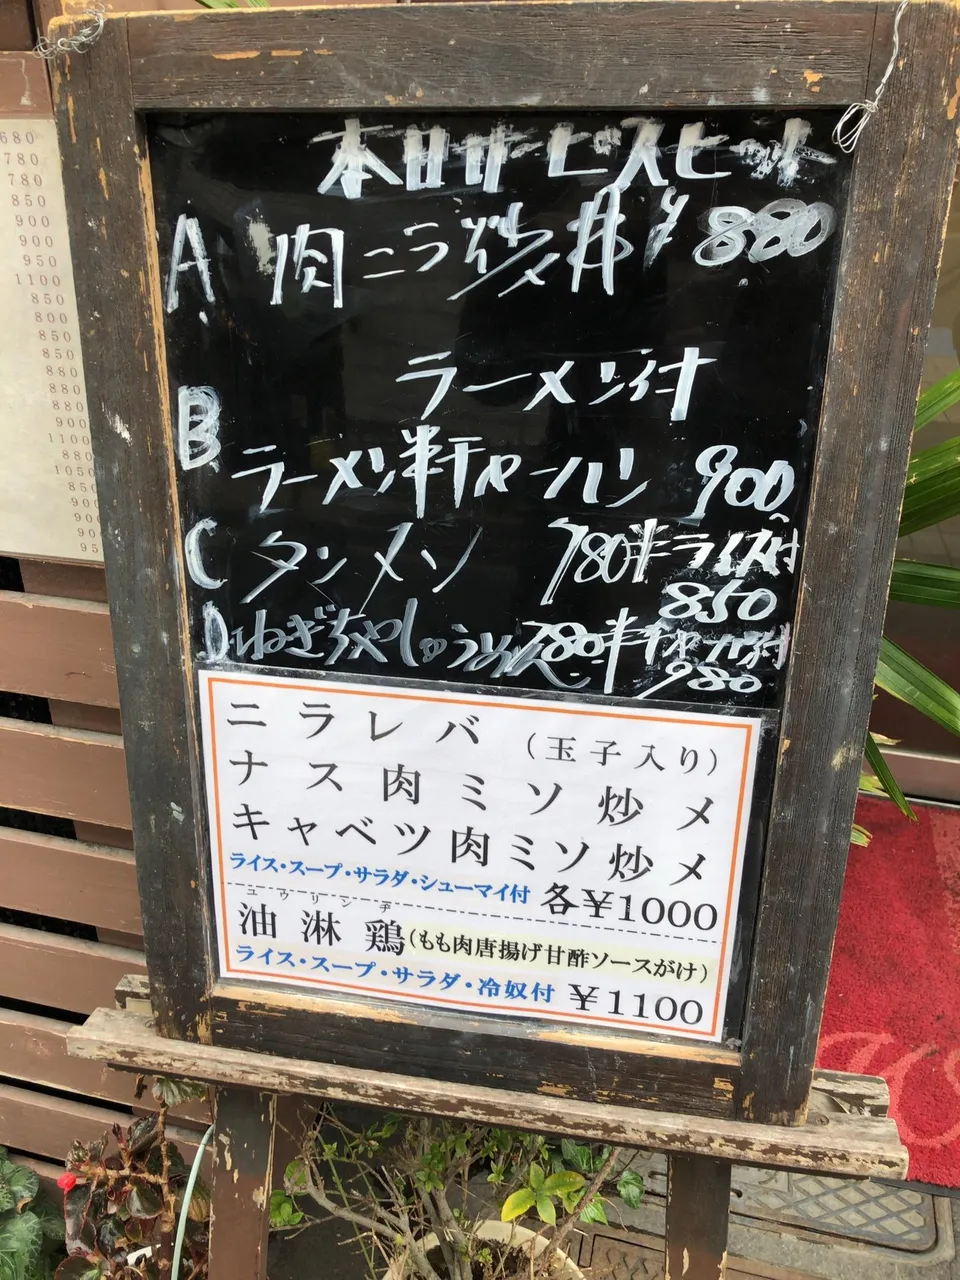 本日サービスセット
A 肉ニラ炒メ丼 ¥880
ラーメン付
B
ラーメン半チャーハン 900
C タンメン 780 半ライス付
850
D ねぎちゃしゅうめん 780 半チャーハン付
980
ニラレバ (玉子入り)
ナス肉ミソ炒メ
キャベツ肉ミソ炒メ
ライス・スープ・サラダ・シューマイ付 各¥1000
ユウリンチ
油淋鶏(もも肉唐揚げ甘酢ソースがけ)
ライス・スープ・サラダ・冷奴付 ¥1100
680
780
780
850
900
900
950
1100
850
800
850
850
880
880
880
900
1100
880
1050
850
900
900
900
95